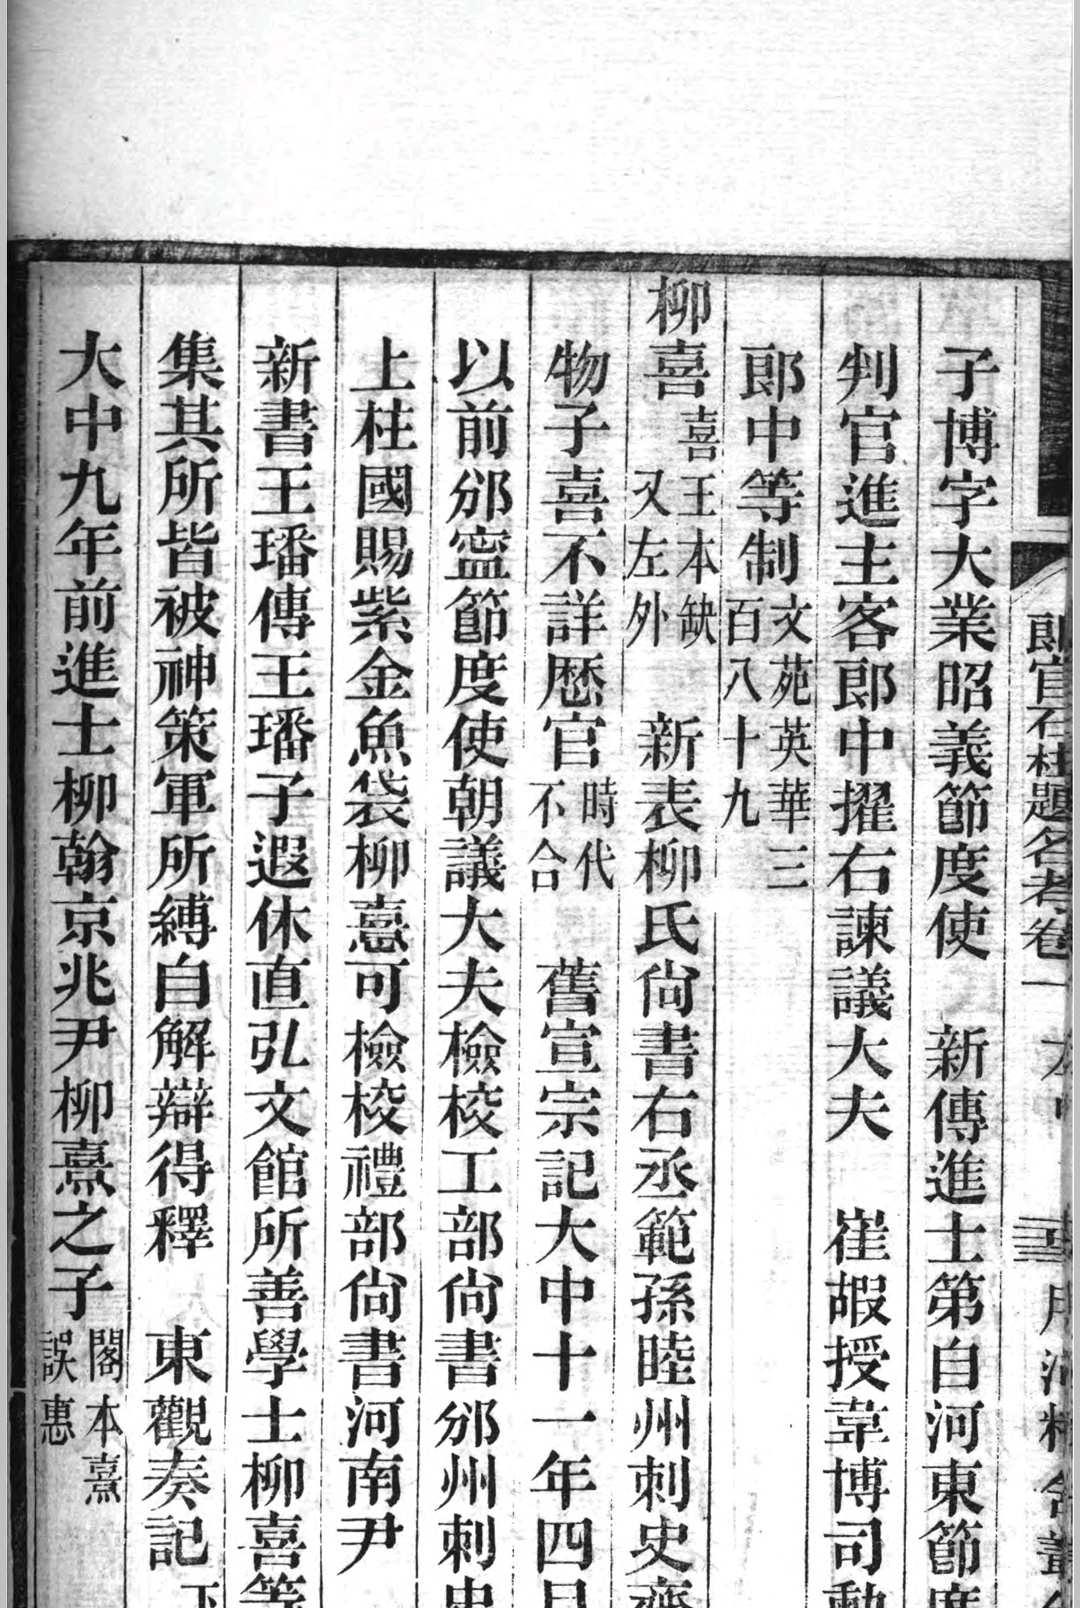 郎官石柱題名考卷一
子博字大業昭義節度使　新傳進士第自河東節度
判官進主客郎中擢右諫議大夫　崔嘏授韋博司勳
郎中等制文苑英華三百八十九
柳喜喜王本缺又左外　新表柳氏尙書右丞範孫睦州刺史齊
物子喜不詳歷官時代不合　舊宣宗記大中十一年四月
以前邠寍節度使朝議大夫檢校工部尙書邠州刺史
上柱國賜紫金魚袋柳憙可檢校禮部尙書河南尹
新書王璠傳王璠子遐休直弘文館所善學士柳喜等
集其所皆被神策軍所縛自解辯得釋　東觀奏記下
大中九年前進士柳翰京兆尹柳熹之子閣本熹誤惠